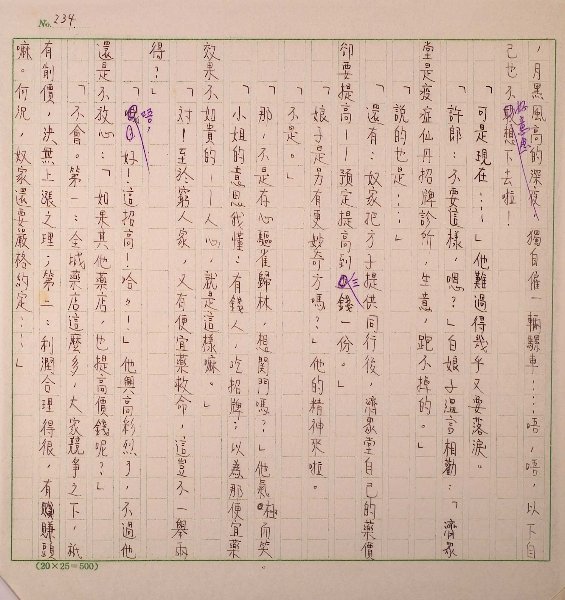 No. 234.
，月黑風高的深夜，獨自僱一輛騾車……唔，唔，以下自
己也不好意思想下去啦！
「可是現在……」他難過得幾乎又要落淚。
「許郎：不要這樣，嗯？」白娘子溫言相勸：「濟眾
堂是疫症仙丹招牌診所，生意，跑不掉的。」
「說的也是……」
「還有：奴家把方子提供同行後，濟眾堂自己的藥價
卻要提高！—預定提高到三錢一份。」
「娘子是另有更妙奇方嗎？」他的精神來啦。
「不是。」
「那，不是存心驅雀歸林，想關門嗎？」他氣極而笑。
「小姐的意思我懂：有錢人，吃招牌；以為那便宜藥
效果不如貴的——人心，就是這樣嘛。」
「對！至於窮人家，又有便宜藥救命，這豈不一舉兩
得？」
「唔，好！這招高！哈ㄅ！」他興高彩烈了，不過他
還是不放心：「如果其他藥店，也提高價錢呢？」
「不會。第一：全城藥店這麼多，大家競爭之下，祇
有削價，決無上漲之理；第二：利潤合理得很，有賺頭
嘛。何況，奴家還要嚴格約定……」
(20×25=500)